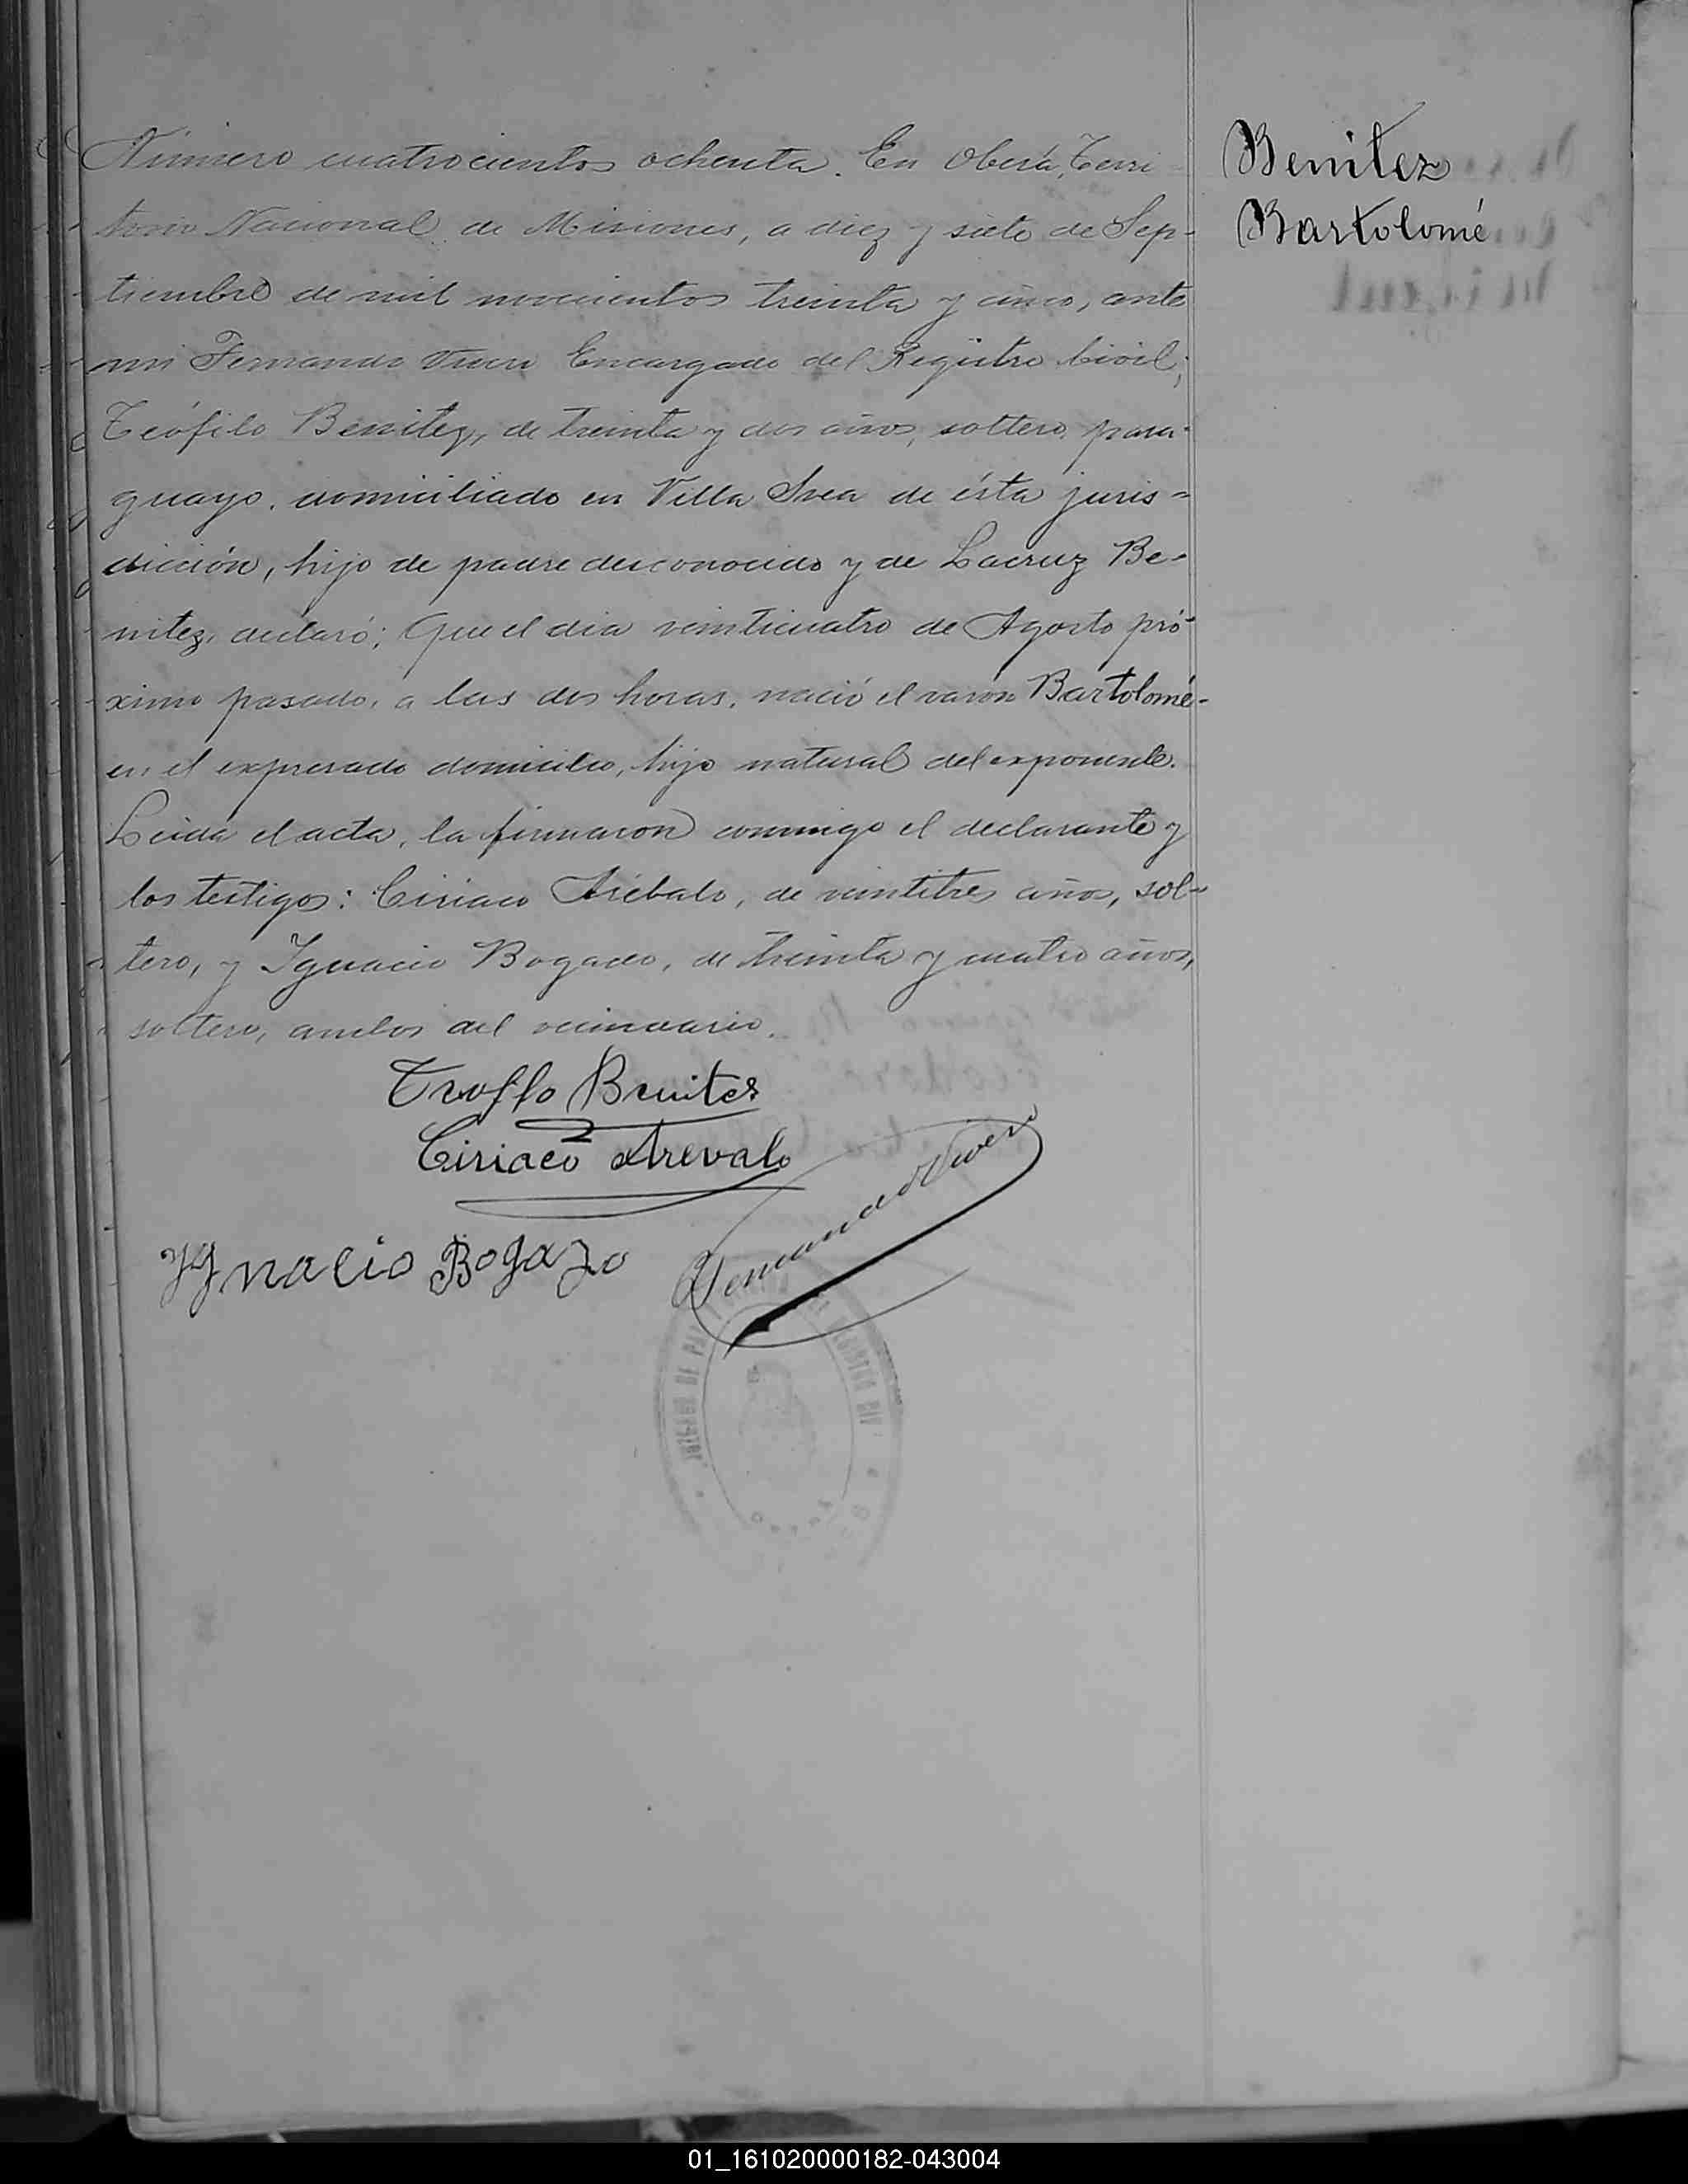 Número cuatrocientos ochenta. En Oberá, Terri
torio Nacional de Misiones, a diez y siete de Sep-
tiembre de mil novecientos treinta y cinco, ante
mi Fernando Vivero Encargado del Registro Civil;
Teófilo Benitez, de treinta y dos años, soltero, para-
guayo, domiciliado en Villa Svea de ésta juris=
dicción, hijo de padre desconocido y de Lacruz Be-
nitez, declaró; Que el dia veinticuatro de Agosto pró-
ximo pasado, a las dos horas, nació el varón Bartolomé-
en el expresado domicilio, hijo natural del exponente.
Leida el acta, la firmaron conmigo el declarante y
los testigos: Ciriaco Arébalo, de veintitres años, sol-
tero, y Ignacio Bogado, de treinta y cuatro años,
soltero, ambos del vecindario.
Benitez
Bartolomé
Teoflo Benites
Ciriaco Arevalo
Ygnacio Bogado
Fernando Vivero
JUZGADO DE PAZ
REGISTRO CIV
01_161020000182-043004